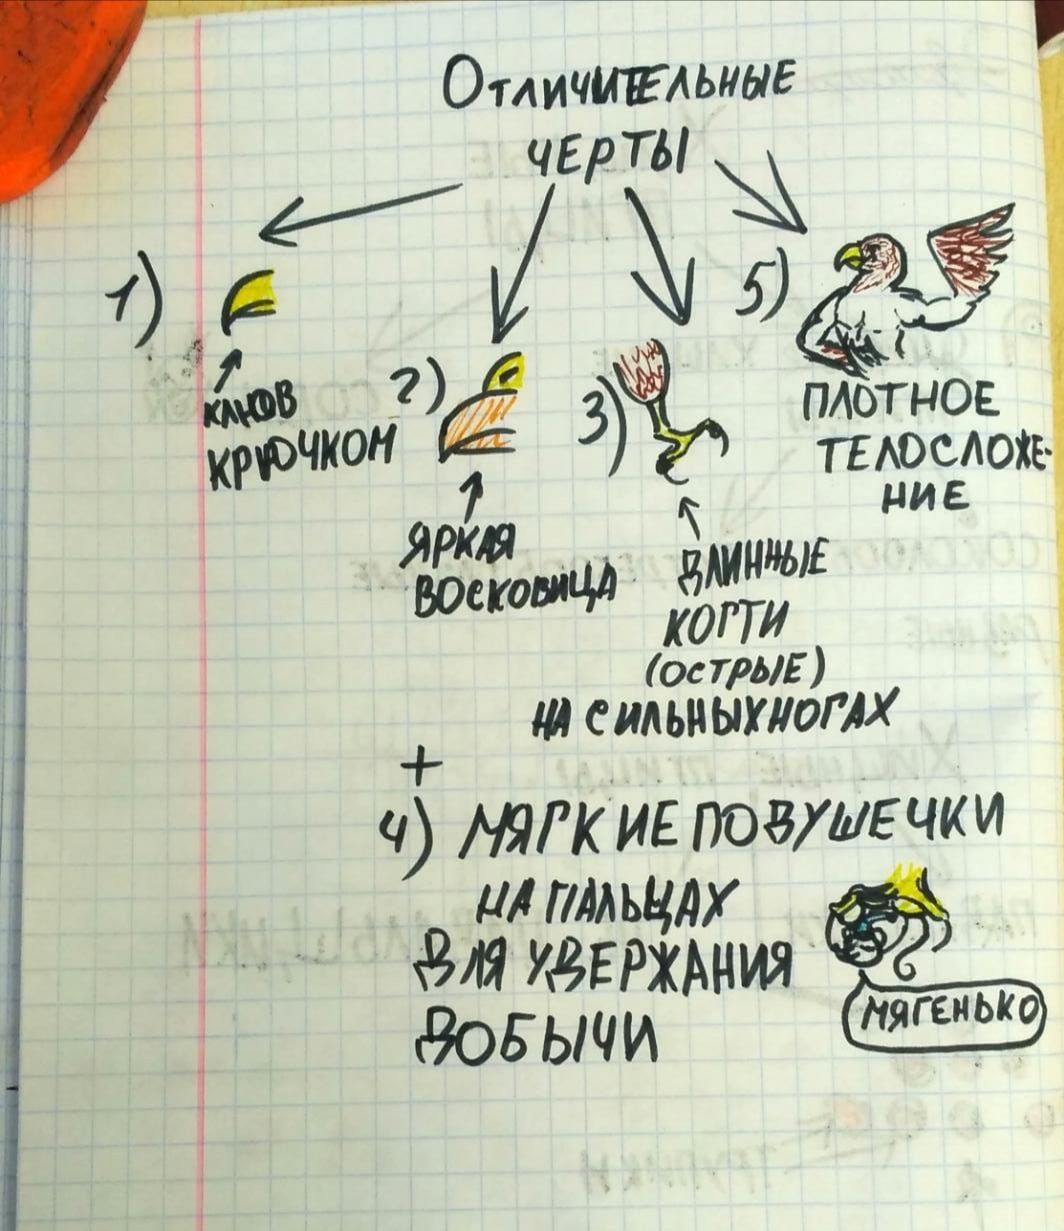 Отличительные
черты
1)
клюв
крючком
2)
яркая
восковица
3)
длинные
когти
(острые)
на сильных ногах
5)
плотное
телосложе-
ние
+
4) мягкие подушечки
на пальцах
для удержания
добычи
мягенько